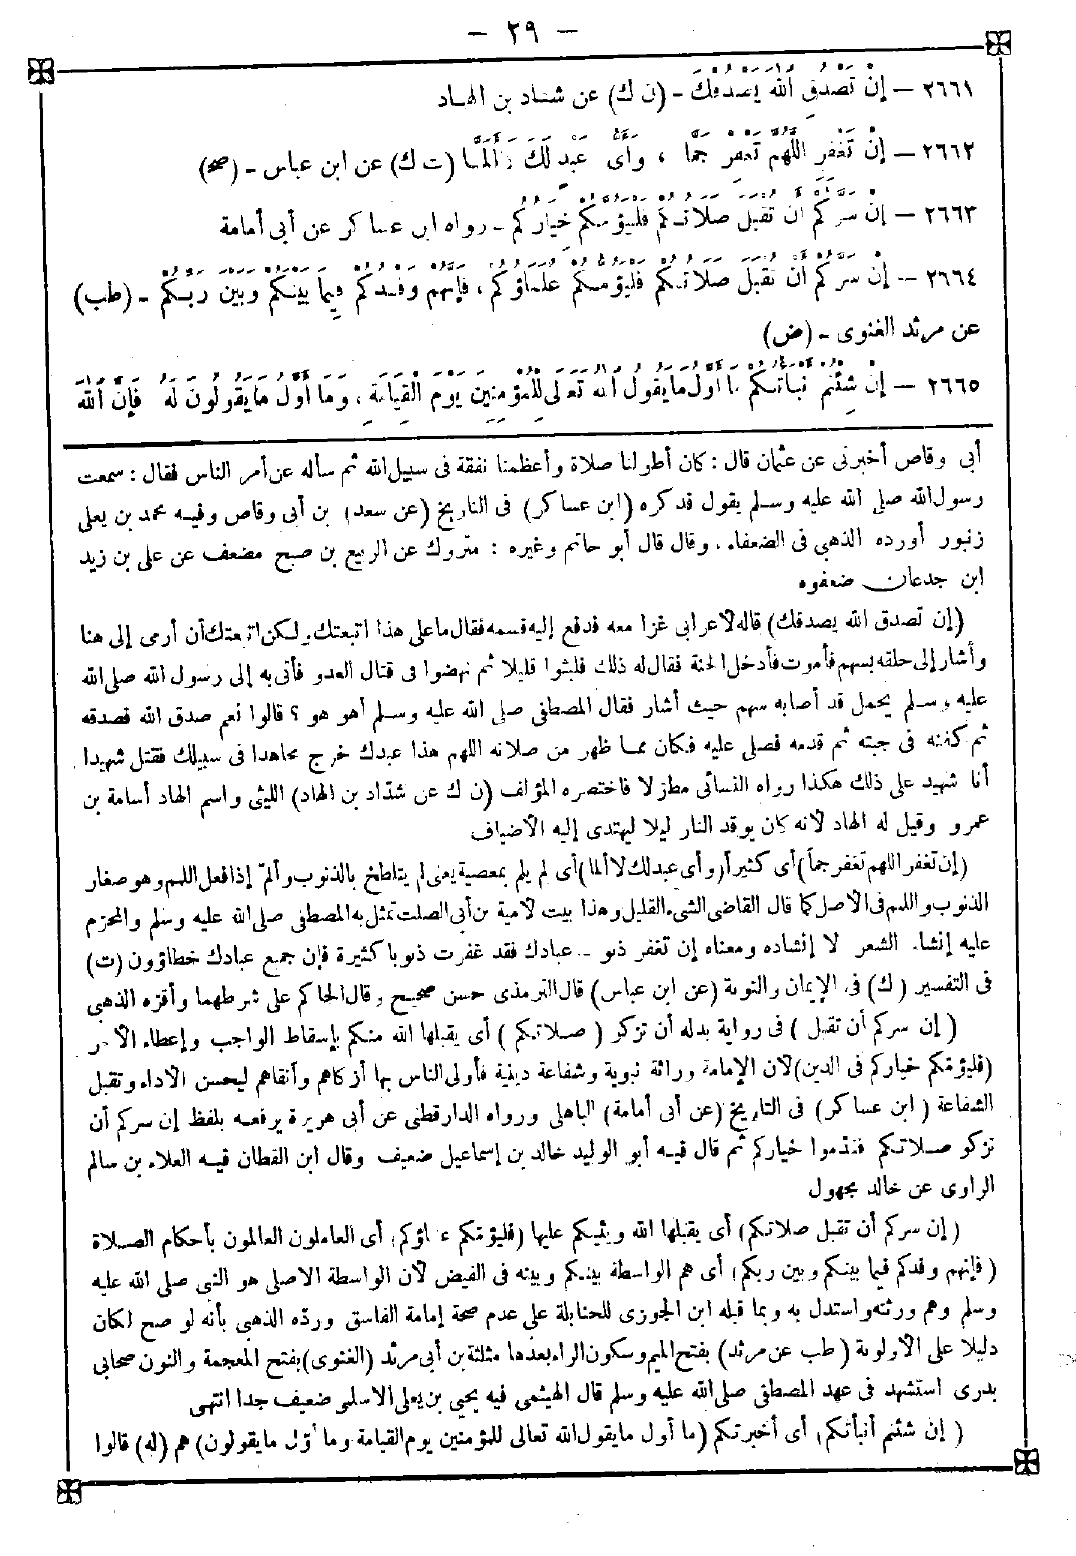 - ٢٩ -
٢٦٦١ - إِنْ تَصْدُقِ اللهَ يَصْدُقْكَ - (ن ك) عن شداد بن الهاد
٢٦٦٢ - إِنْ تَغْفِرِ اللَّهُمَّ تَغْفِرْ جَمَّا ، وَأَىُّ عَبْدٍ لَكَ لَا أَلَمَّا (ت ك) عن ابن عباس - (صح)
٢٦٦٣ - إِنْ سَرَّكُمْ أَنْ تُقْبَلَ صَلَاتُكُمْ فَلْيَؤُمَّكُمْ خِيَارُكُمْ - رواه ابن عساكر عن أبى أمامة
٢٦٦٤ - إِنْ سَرَّكُمْ أَنْ تُقْبَلَ صَلَاتُكُمْ فَلْيَؤُمَّكُمْ عُلَمَاؤُكُمْ ، فَإِنَّهُمْ وَفْدُكُمْ فِيمَا بَيْنَكُمْ وَبَيْنَ رَبِّكُمْ - (طب)
عن مرثد الغنوى - (ض)
٢٦٦٥ - إِنْ شِئْتُمْ أَنْبَأْتُكُمْ مَا أَوَّلُ مَا يَقُولُ اللهُ تَعَالَى لِلْمُؤْمِنِينَ يَوْمَ الْقِيَامَةِ ، وَمَا أَوَّلُ مَا يَقُولُونَ لَهُ فَإِنَّ اللهَ
أبى وقاص أخبرنى عن عثمان قال : كان أطولنا صلاة وأعظمنا نفقة فى سبيل الله ثم سأله عن أمر الناس فقال : سمعت
رسول الله صلى الله عليه وسلم يقول فذكره (ابن عساكر) فى التاريخ (عن سعد) بن أبى وقاص وفيه محمد بن يعلى
زنبور أورده الذهبى فى الضعفاء ، وقال قال أبو حاتم وغيره : متروك عن الربيع بن صبح مضعف عن على بن زيد
ابن جدعان ضعفوه
(إن تصدق الله يصدقك) قاله لأعرابى غزا معه فدفع إليه قسمه فقال ما على هذا اتبعتك ولكن اتبعتك أن أرمى إلى هنا
وأشار إلى حلقه بسهم فأموت فأدخل الجنة فقال له ذلك فلبثوا قليلا ثم نهضوا فى قتال العدو فأتى به إلى رسول الله صلى الله
عليه وسلم يحمل قد أصابه سهم حيث أشار فقال المصطفى صلى الله عليه وسلم أهو هو ؟ قالوا نعم صدق الله فصدقه
ثم كفنه فى جبته ثم قدمه فصلى عليه فكان مما ظهر من صلاته اللهم هذا عبدك خرج مجاهدا فى سبيلك فقتل شهيدا
أنا شهيد على ذلك هكذا رواه النسائى مطولا فاختصره المؤلف (ن ك عن شداد بن الهاد) الليثى واسم الهاد أسامة بن
عمرو وقيل له الهاد لأنه كان يوقد النار ليلا ليهتدى إليه الأضياف
(إن تغفر اللهم تغفر جماً) أى كثيراً (وأى عبد لك لا ألما) أى لم يلم بمعصية يعنى لم يتلطخ بالذنوب وألمّ إذا فعل اللمم وهو صغار
الذنوب واللمم فى الأصل كما قال القاضى الشىء القليل وهذا بيت لأمية بن أبى الصلت تمثل به المصطفى صلى الله عليه وسلم والمحرم
عليه إنشاء الشعر لا إنشاده ومعناه إن تغفر ذنوب عبادك فقد غفرت ذنوبا كثيرة فإن جميع عبادك خطاؤون (ت)
فى التفسير (ك) فى الإيمان والتوبة (عن ابن عباس) قال الترمذى حسن صحيح وقال الحاكم على شرطهما وأقره الذهبى
(إن سركم أن تقبل) فى رواية بدله أن تزكو (صلاتكم) أى يقبلها الله منكم بإسقاط الواجب وإعطاء الأجر
(فليؤمكم خياركم فى الدين) لأن الإمامة وراثة نبوية وشفاعة دينية فأولى الناس بها أزكاهم وأتقاهم ليحسن الأداء وتقبل
الشفاعة (ابن عساكر) فى التاريخ (عن أبى أمامة) الباهلى ورواه الدارقطنى عن أبى هريرة يرفعه بلفظ إن سركم أن
تزكو صلاتكم فقدموا خياركم ثم قال فيه أبو الوليد خالد بن إسماعيل ضعيف وقال ابن القطان فيه العلاء بن سالم
الراوى عن خالد مجهول
(إن سركم أن تقبل صلاتكم) أى يقبلها الله ويثيبكم عليها (فليؤمكم علماؤكم) أى العاملون العالمون بأحكام الصلاة
(فإنهم وفدكم فيما بينكم وبين ربكم) أى هم الواسطة بينكم وبينه فى الفيض لأن الواسطة الأصلى هو النبى صلى الله عليه
وسلم وهم ورثته واستدل به وبما قبله ابن الجوزى للحنابلة على عدم صحة إمامة الفاسق ورده الذهبى بأنه لو صح لكان
دليلا على الأولوية (طب عن مرثد) بفتح الميم وسكون الراء بعدها مثلثة بن أبى مرثد (الغنوى) بفتح المعجمة والنون صحابى
بدرى استشهد فى عهد المصطفى صلى الله عليه وسلم قال الهيثمى فيه يحيى بن يعلى الأسلمى ضعيف جدا انتهى
(إن شئتم أنبأتكم) أى أخبرتكم (ما أول ما يقول الله تعالى للمؤمنين يوم القيامة وما أول ما يقولون) هم (له) قالوا